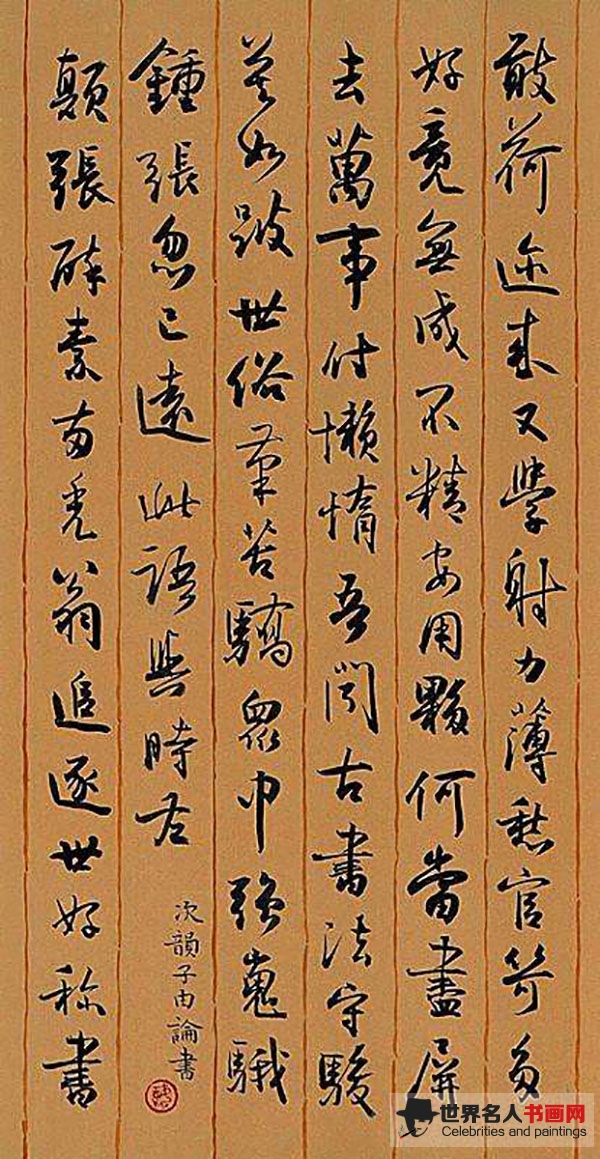 敢荷迩來又學射力薄愁官笴多
好竟無成不精安用夥何當盡屏
去萬事付懶惰吾聞古書法守駿
莫如跛世俗筆苦驕眾中強嵬騀
鍾張忽已遠此語與時左
次韻子由論書
顛張醉素兩禿翁追逐世好稱書
世界名人书画网
Celebrities and paintings